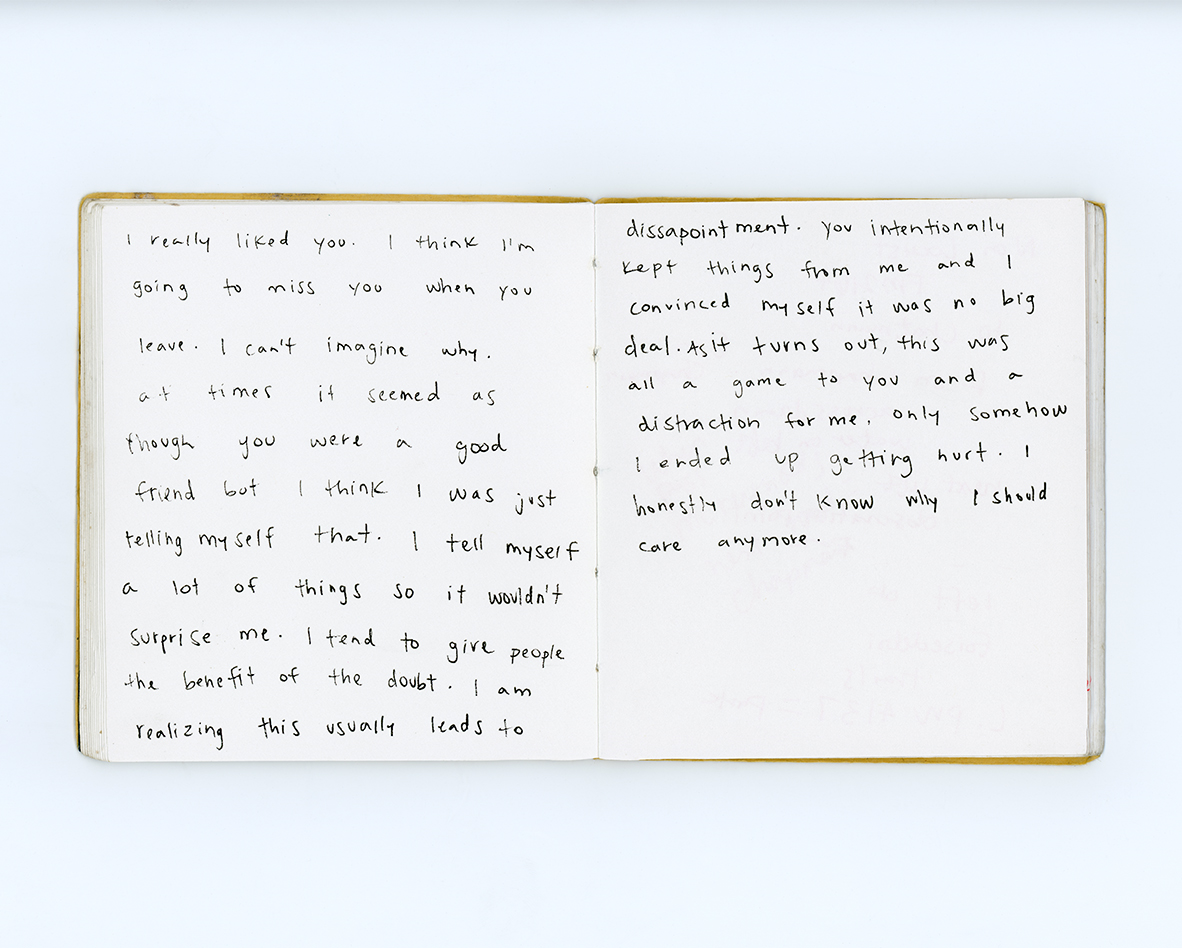 I really liked you. I think I'm
going to miss you when you
leave. I can't imagine why.
at times it seemed as
though you were a good
friend but I think I was just
telling myself that. I tell myself
a lot of things so it wouldn't
surprise me. I tend to give people
the benefit of the doubt. I am
realizing this usually leads to
dissapointment. you intentionally
kept things from me and I
convinced myself it was no big
deal. As it turns out, this was
all a game to you and a
distraction for me, only somehow
I ended up getting hurt. I
honestly don't know why I should
care anymore.